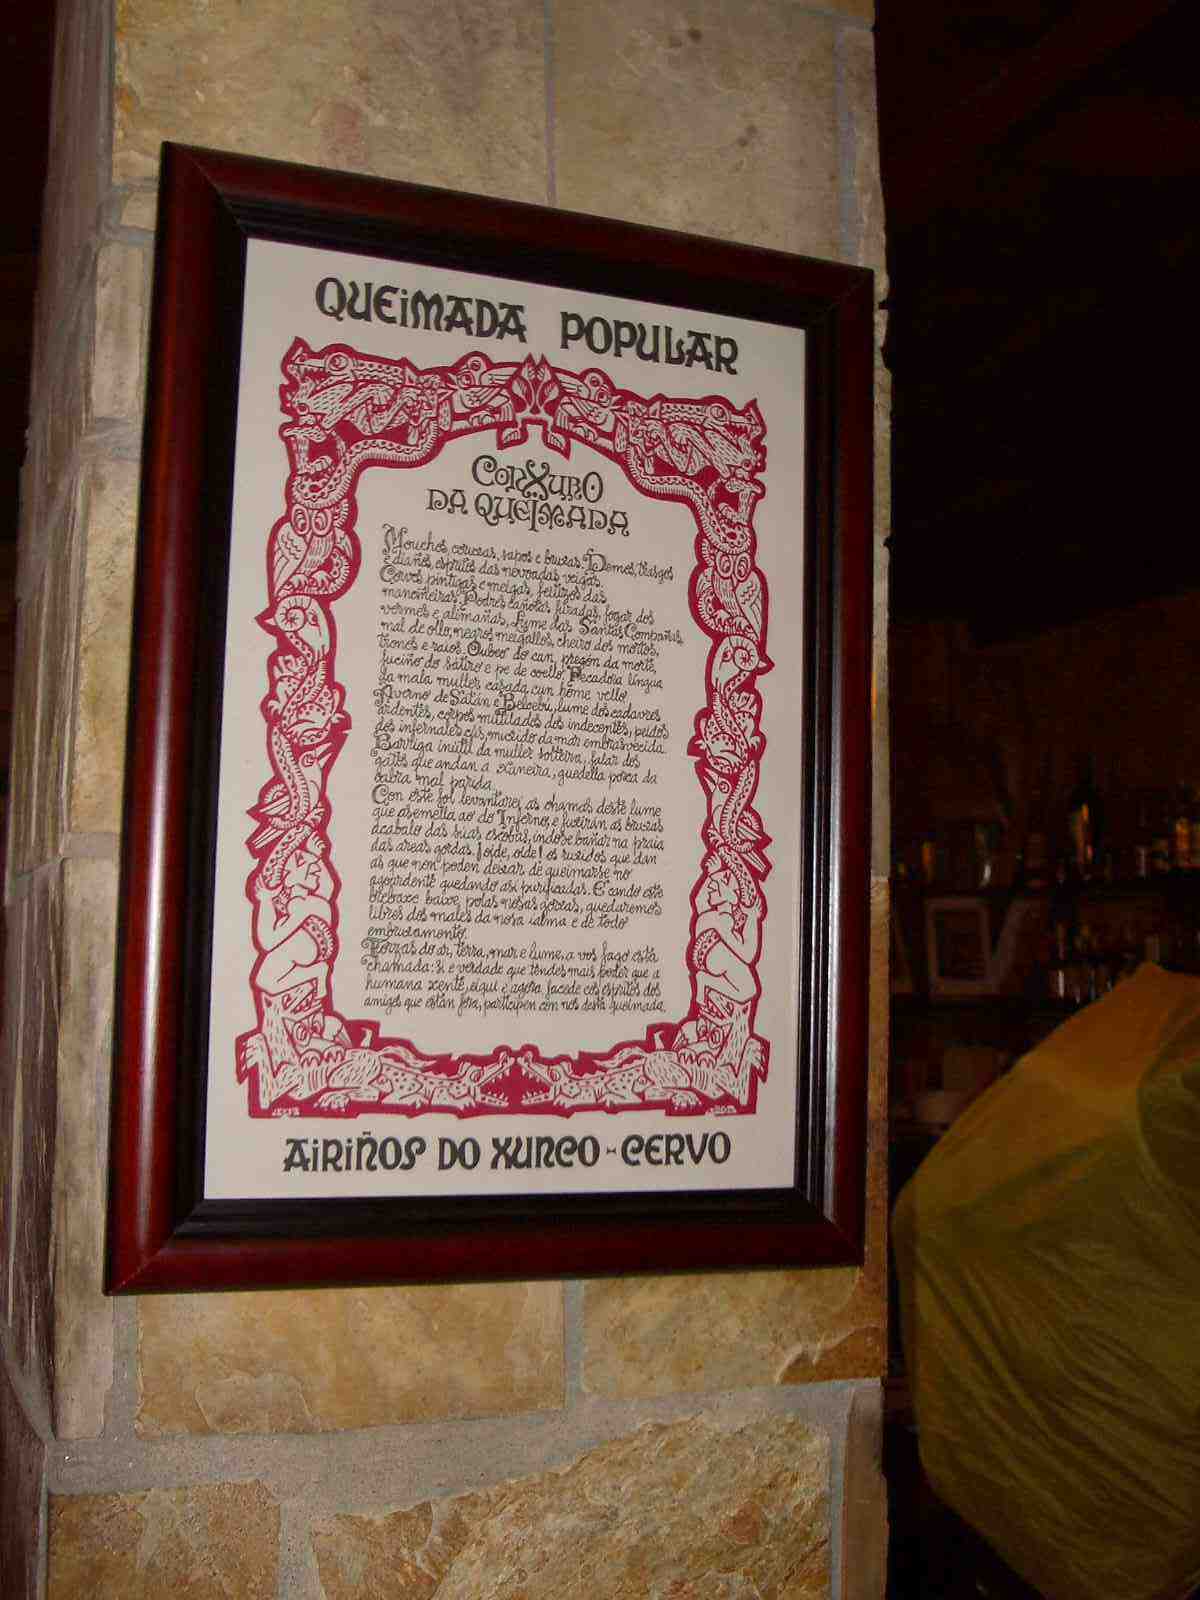 QUEIMADA POPULAR
CONXURO
DA QUEIMADA
Mouchos, coruxas, sapos e bruxas. Demos, trasgos
e diaños, espritos das nevoadas veigas.
Corvos, pintigas e meigas, feitizos das
manciñeiras. Podres cañotas furadas, fogar dos
vermes e alimañas. Lume das Santas Compañas,
mal de ollo, negros meigallos, cheiro dos mortos,
tronos e raios. Oubeo do can, pregón da morte,
fuciño do sátiro e pé do coello. Pecadora lingua
da mala muller casada cun home vello.
Averno de Satán e Belcebú, lume dos cadavres
ardentes, corpos mutilados dos indecentes, peidos
dos infernales cús, muxido da mar embravescida.
Barriga inútil da muller solteira, falar dos
gatos que andan a xaneira, guedella porca da
cabra mal parida.
Con este fol levantarei as chamas deste lume
que asemella ao do Inferno, e fuxirán as bruxas
acabalo das súas escobas, índose bañar na praia
das areas gordas. ¡Oíde, oíde! os ruxidos que dan
as que non poden deixar de queimarse no
agoardente quedando así purificadas. E cando este
brebaxe baixe polas nosas gorxas, quedaremos
libres dos males da nosa ialma e de todo
embruxamento.
Forzas do ar, terra, mar e lume, a vós fago esta
chamada: si é verdade que tendes mais poder que a
humana xente, eiquí e agora, facede cos espritos dos
amigos que están fora, participen con nós desta queimada.
AIRIÑOS DO XUNCO - CERVO